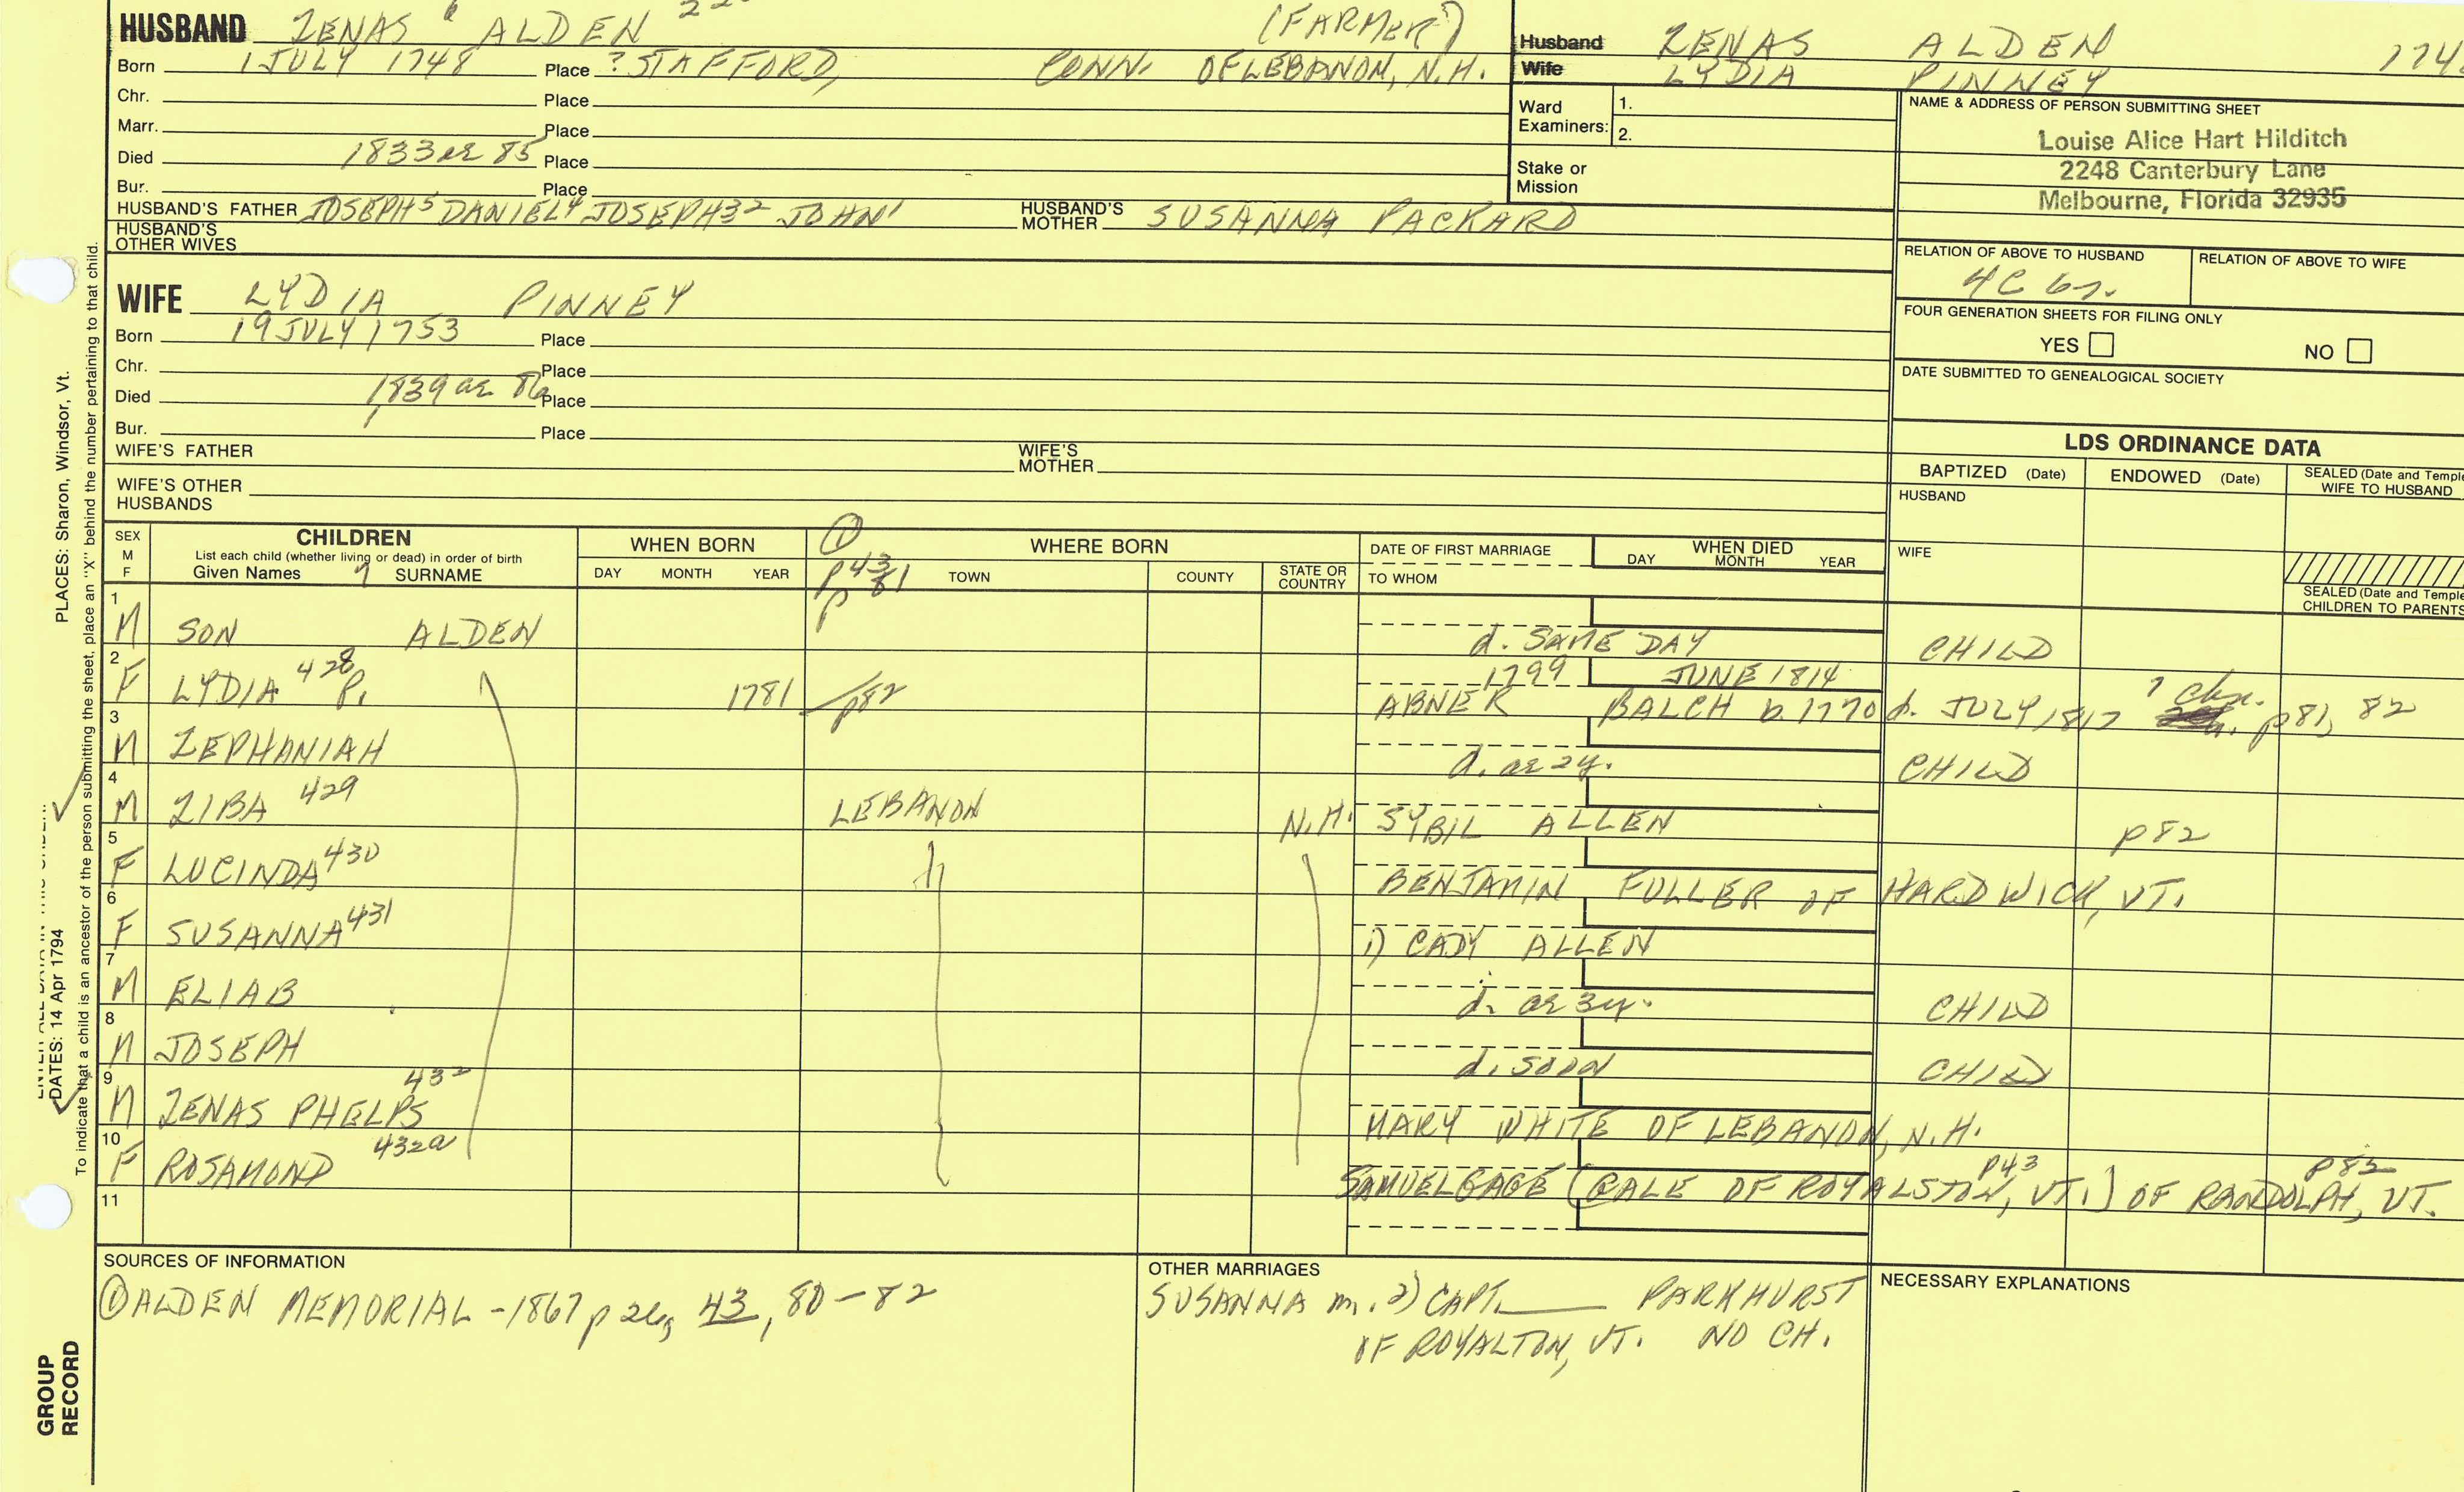 HUSBAND ZENAS 6 ALDEN (FARMER)
Born 1 JULY 1748 Place ? STAFFORD, CONN. OF LEBANON, N.H.
Chr. Place
Marr. Place
Died 1833 ae 85 Place
Bur. Place
HUSBAND'S FATHER JOSEPH5 DANIEL4 JOSEPH32 JOHN1 HUSBAND'S MOTHER SUSANNA PACKARD
HUSBAND'S OTHER WIVES
Husband ZENAS ALDEN
Wife LYDIA PINNEY
Ward Examiners: 1.
2.
Stake or Mission
NAME & ADDRESS OF PERSON SUBMITTING SHEET
Louise Alice Hart Hilditch
2248 Canterbury Lane
Melbourne, Florida 32935
RELATION OF ABOVE TO HUSBAND RELATION OF ABOVE TO WIFE
4C 6r.
FOUR GENERATION SHEETS FOR FILING ONLY
YES NO
DATE SUBMITTED TO GENEALOGICAL SOCIETY
WIFE LYDIA PINNEY
Born 19 JULY 1753 Place
Chr. Place
Died 1839 ae 86 Place
Bur. Place
WIFE'S FATHER WIFE'S MOTHER
WIFE'S OTHER HUSBANDS
LDS ORDINANCE DATA
BAPTIZED (Date) ENDOWED (Date) SEALED (Date and Temple
WIFE TO HUSBAND
HUSBAND
WIFE
SEALED (Date and Temple
CHILDREN TO PARENTS
SEX M F
CHILDREN
List each child (whether living or dead) in order of birth
Given Names 7 SURNAME
WHEN BORN
DAY MONTH YEAR
1 p43
p 81
WHERE BORN
TOWN COUNTY STATE OR COUNTRY
DATE OF FIRST MARRIAGE
TO WHOM
WHEN DIED
DAY MONTH YEAR
1 M SON ALDEN d. SAME DAY CHILD
2 F LYDIA 428 P. 1781 p82 1799 JUNE 1814
ABNER BALCH b. 1770 d. JULY 1817 7 chn. p81, 82
3 M ZEPHANIAH d. ae 2y. CHILD
4 M ZIBA 429 LEBANON N.H. SYBIL ALLEN p82
5 F LUCINDA 430 BENJAMIN FULLER OF HARDWICK, VT.
6 F SUSANNA 431 1) CADY ALLEN
7 M ELIAB d. ae 3y. CHILD
8 M JOSEPH d. SOON CHILD
9 M ZENAS PHELPS 432 MARY WHITE OF LEBANON, N.H.
10 F ROSAMOND 432a SAMUEL GAGE (GALE OF ROYALSTON, VT.) p43 OF RANDOLPH, VT. p82
11
SOURCES OF INFORMATION
1 ALDEN MEMORIAL - 1867 p 26, 43, 80-82
OTHER MARRIAGES
SUSANNA m. 2) CAPT. PARKHURST
OF ROYALTON, VT. NO CH.
NECESSARY EXPLANATIONS
DATES: 14 Apr 1794 PLACES: Sharon, Windsor, Vt.
To indicate that a child is an ancestor of the person submitting the sheet, place an "X" behind the number pertaining to that child.
GROUP
RECORD